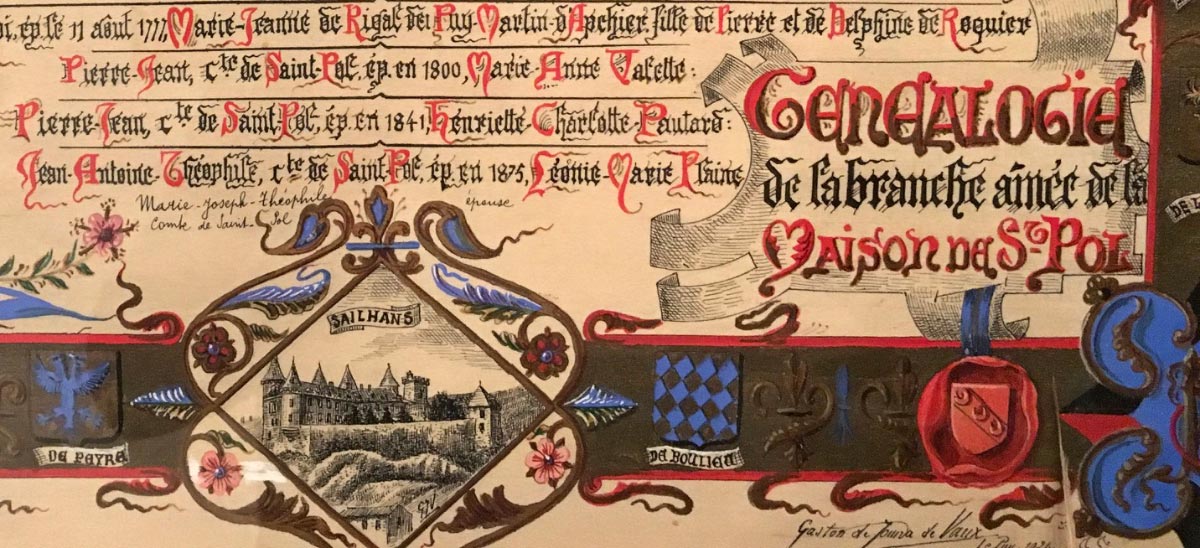 ép. le 11 août 1777, Marie-Jeanne de Rigal dei Puy-Martin-d'Apchier, fille de Pierre et de Delphine de Roquier
Pierre-Jean, cte de Saint-Pol, ép. en 1800, Marie-Anne Valette:
Pierre-Jean, cte de Saint-Pol, ép. en 1841, Henriette-Charlotte-Pautard:
Jean-Antoine-Théophile, cte de Saint-Pol, ép. en 1875, Léonie-Marie Plaine
Marie-Joseph-Théophile épouse
Comte de Saint-Pol
GENEALOGIE
de la branche aînée de la
MAISON DE St POL
SAILHANS
DE PEYRE
DE BOULIEU
Gaston de Jourda de Vaux
Le Puy